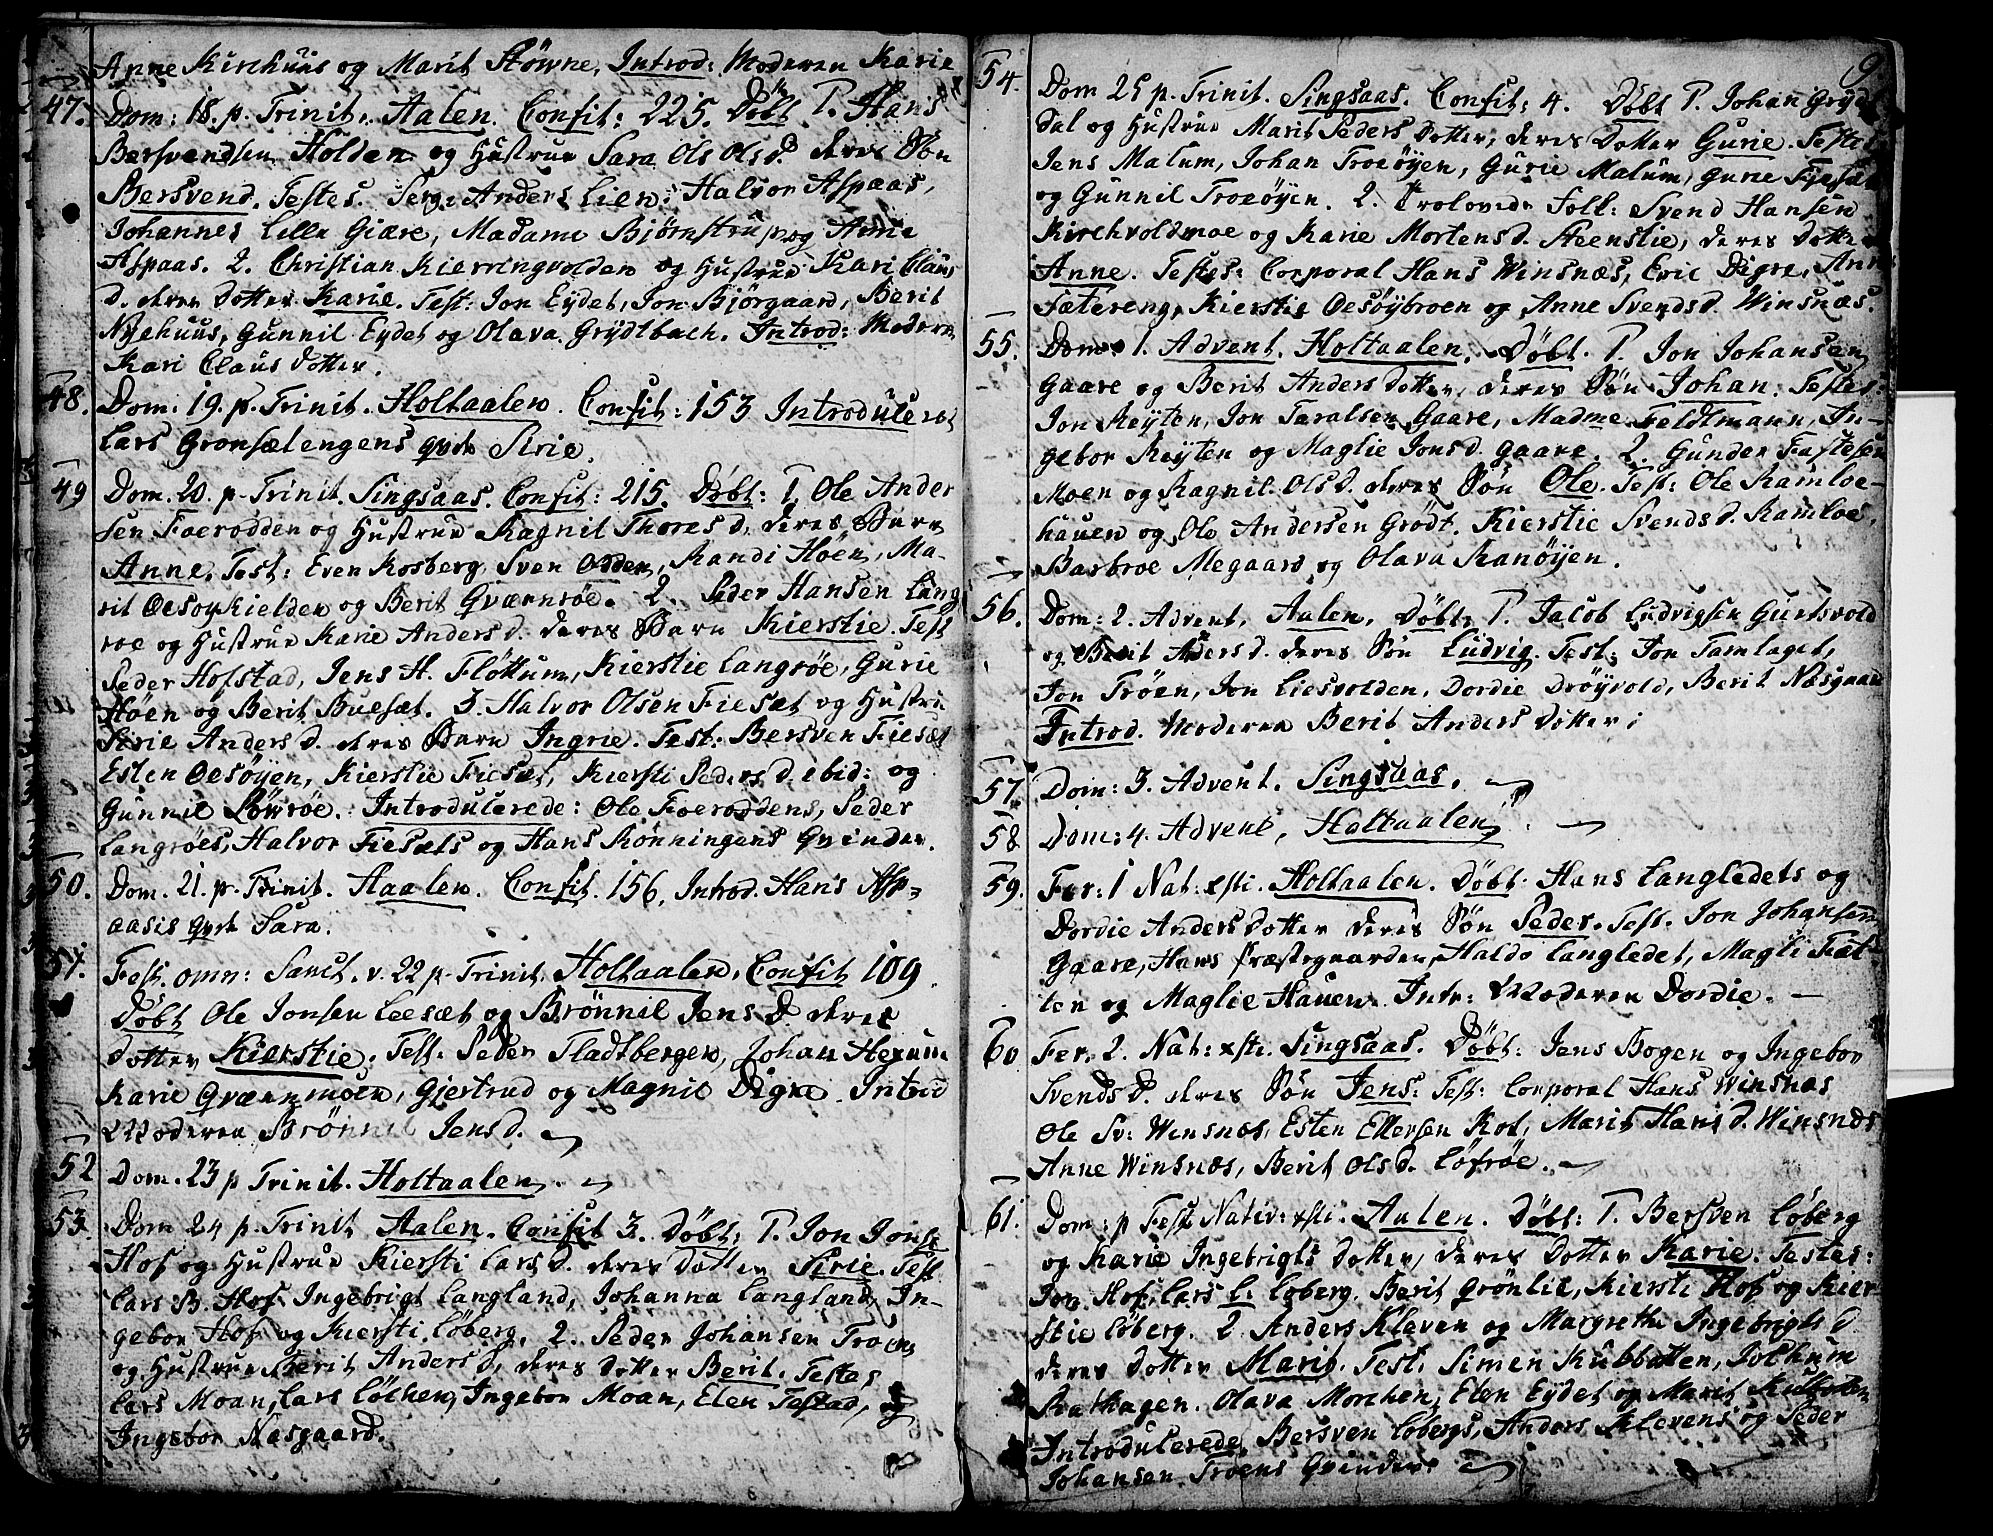 Anne Kirchuus og Marit Støwne, Introd: Moderen Karie
47. Dom: 18. p. Trinit. Aalen. Confit: 225. Døbt 1. Hans
Bersvendsen Holden og Hustrue Sara Ols Olsd. deres Søn
Bersvend. Testes. Serg: Anders Lien, Halvor Aspaas,
Johannes Lille Giære, Madame Bjørnstrup og Anne
Aspaas. 2. Christian Kierringvolden og Hustrue Kari Claus
d. deres Dotter Karie. Test: Jon Eydet, Jon Bjørgaard, Berit
Nyehuus, Gunnil Eydet og Olava Grydtbach. Introd: Moderen
Kari Claus Dotter.
48. Dom. 19. p. Trinit. Holtaalen. Confit: 153 Introducered
Lars Gronsætengens qvde Sirie.
49 Dom. 20. p. Trinit. Singsaas. Confit: 215. Døbt: 1. Ole Ander
sen Foerodden og Hustrue Ragnil Thores d, deres Barn
Anne. Test: Even Rosberg, Sven Odden, Randi Høen, Ma-
rit Oesøykielden og Berit Qværnrøe. 2. Peder Hansen Lang
roe og Hustrue Karie Anders d. deres Barn Kierstie. Test
Peder Hofstad, Jens H. Fløttum, Kierstie Langrøe, Gurie
Høen og Berit Buesæt. 3. Halvor Olsen Fiesæt og Hustru
Sirie Anders d. deres Barn Ingrie. Test: Bersven Fiesæt
Esten Oesøyen, Kierstie Fiesæt, Kiersti Peders d. ebid: og
Gunnil Løvrøe. Introducerede: Ole Foeroddens, Peder
Langrøes, Halvor Fiesæts og Hans Rønningens Qvinder.
50. Dom. 21. p. Trinit. Aaalen. Confit. 156, Introd. Hans Asp-
aasis qvde Sara.
51. Fest. omn: Sanct. v. 22 p. Trinit. Holtaalen, Confit 109.
Døbt Ole Jonsen Leesæt og Brønnil Jens D. deres
Dotter Kierstie. Test: Peder Fladtbergen, Johan Hexum
Karie Qværnmoen, Gjertrud og Magnil Digre. Introd
Moderen Brønnil Jens d.
52 Dom. 23 p Trinit. Holtaalen.
53. Dom 24 p. Trinit Aalen. Confit 3. Døbt: 1. Jon Jonse
Hof og Hustrue Kiersti Lars D. deres Dotter Sirie. Test
Lars B. Hof Ingebrigt Langland, Johanna Langland, In-
gebor Hof og Kiersti Løberg. 2. Peder Johansen Troens
og Hustrue Berit Anders d, deres Dotter Berit. Testes
Lars Moan, Lars Løchen, Ingebor Moan, Elen Testad, og
Ingebor Næsgaard.
9
54. Dom 25 p. Trinit. Singsaas. Confit: 4. Døbt 1. Johan Grydt
dal og Hustrue Marit Peders Dotter, deres Dotter Gurie. Testes
Jens Malum, Johan Troeøyen, Gurie Malum, Gurie Fjesæt
og Gunnil Troeøyen. 2. Trolovede Folk: Svend Hansen
Kirchvoldmoe og Karie Mortensd. Steenslie, deres Dotter
Anne. Testes: Corporal Hans Winsnæs, Eric Digre, Anne
Fætereng, Kierstie Oesøybroen og Anne Svends d. Winsnæs.
55. Dom: 1. Advent. Holtaalen. Døbt. 1. Jon Johansen
Gaare og Berit Anders Dotter, deres Søn Johan. Testes:
Jon Røyten, Jon Taralsen Gaare, Madme Feldtmann, In-
gebor Røyten og Maglie Jons d. Gaare. 2. Gunder Fastesen
Moen og Ragnil Ols d. deres Søn Ole. Test: Ole Ramloe-
hauen og Ole Andersen Grødt. Kierstie Svends d. Ramloe,
Barbroe Megaard og Olava Ranøyen.
56. Dom: 2. Advent, Aalen, Døbt. 1. Jacob Ludvigsen Gurisvold
og Berit Anders d. deres Søn Ludvig. Test: Jon Tamlaget,
Jon Trøen, Jon Liesvolden, Dordie Drøyvold, Berit Næsgaard
Introd. Moderen Berit Anders Dotter;
57 Dom: 3. Advent. Singsaas.
58 Dom: 4. Advent, Holtaalen
59. Fer: 1 Nat: xsti. Holtaalen. Døbt: Hans Langledets og
Dordie Anders Dotter deres Søn Peder. Test. Jon Johansen
Gaare, Hans Præstegaarden, Haldo Langledet, Magli Fat-
ten og Maglie Hauen. Intr: Moderen Dordie.
60 Fer. 2. Nat: xsti. Singsaas. Døbt: Jens Bogen og Ingebor
Svends D. deres Søn Jens. Test: Corporal Hans Winsnæs
Ole Sv: Winsnæs, Esten Ellersen Kot, Marit Hans D. Winsnæs
Anne Winsnæs, Berit Ols d. Løfrøe.
61. Dom: p Fest Nativ: xsti. Aalen. Døbt: 1. Bersven Løberg
og Karie Ingebrigts Dotter, deres Dotter Karie. Testes:
Jon Hof, Lars L. Løberg. Berit Grønlie, Kiersti Hof og Kier
stie Løberg. 2. Anders Kleven og Margrethe Ingebrigts d
deres Dotter Marit. Test: Simen Kubbatten, Jochum
Rathagen. Olava Morchen, Elen Eydet og Marit Kubbatten
Introducerede Bersven Løbergs, Anders Klevens og Peder
Johansen Troens Qvinder.